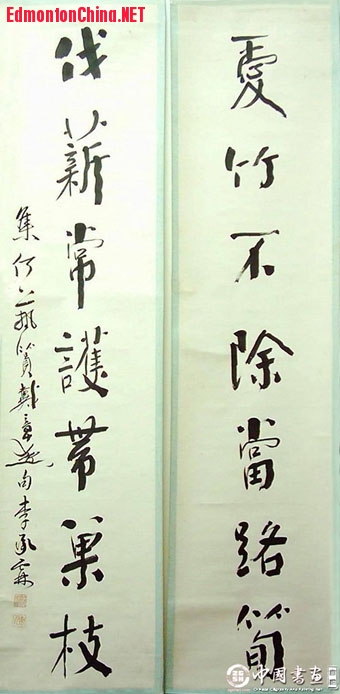 EdmontonChina.NET
愛竹不除當路筍
伐薪常護帶巢枝
集何 戴 句李承霖
中國書画